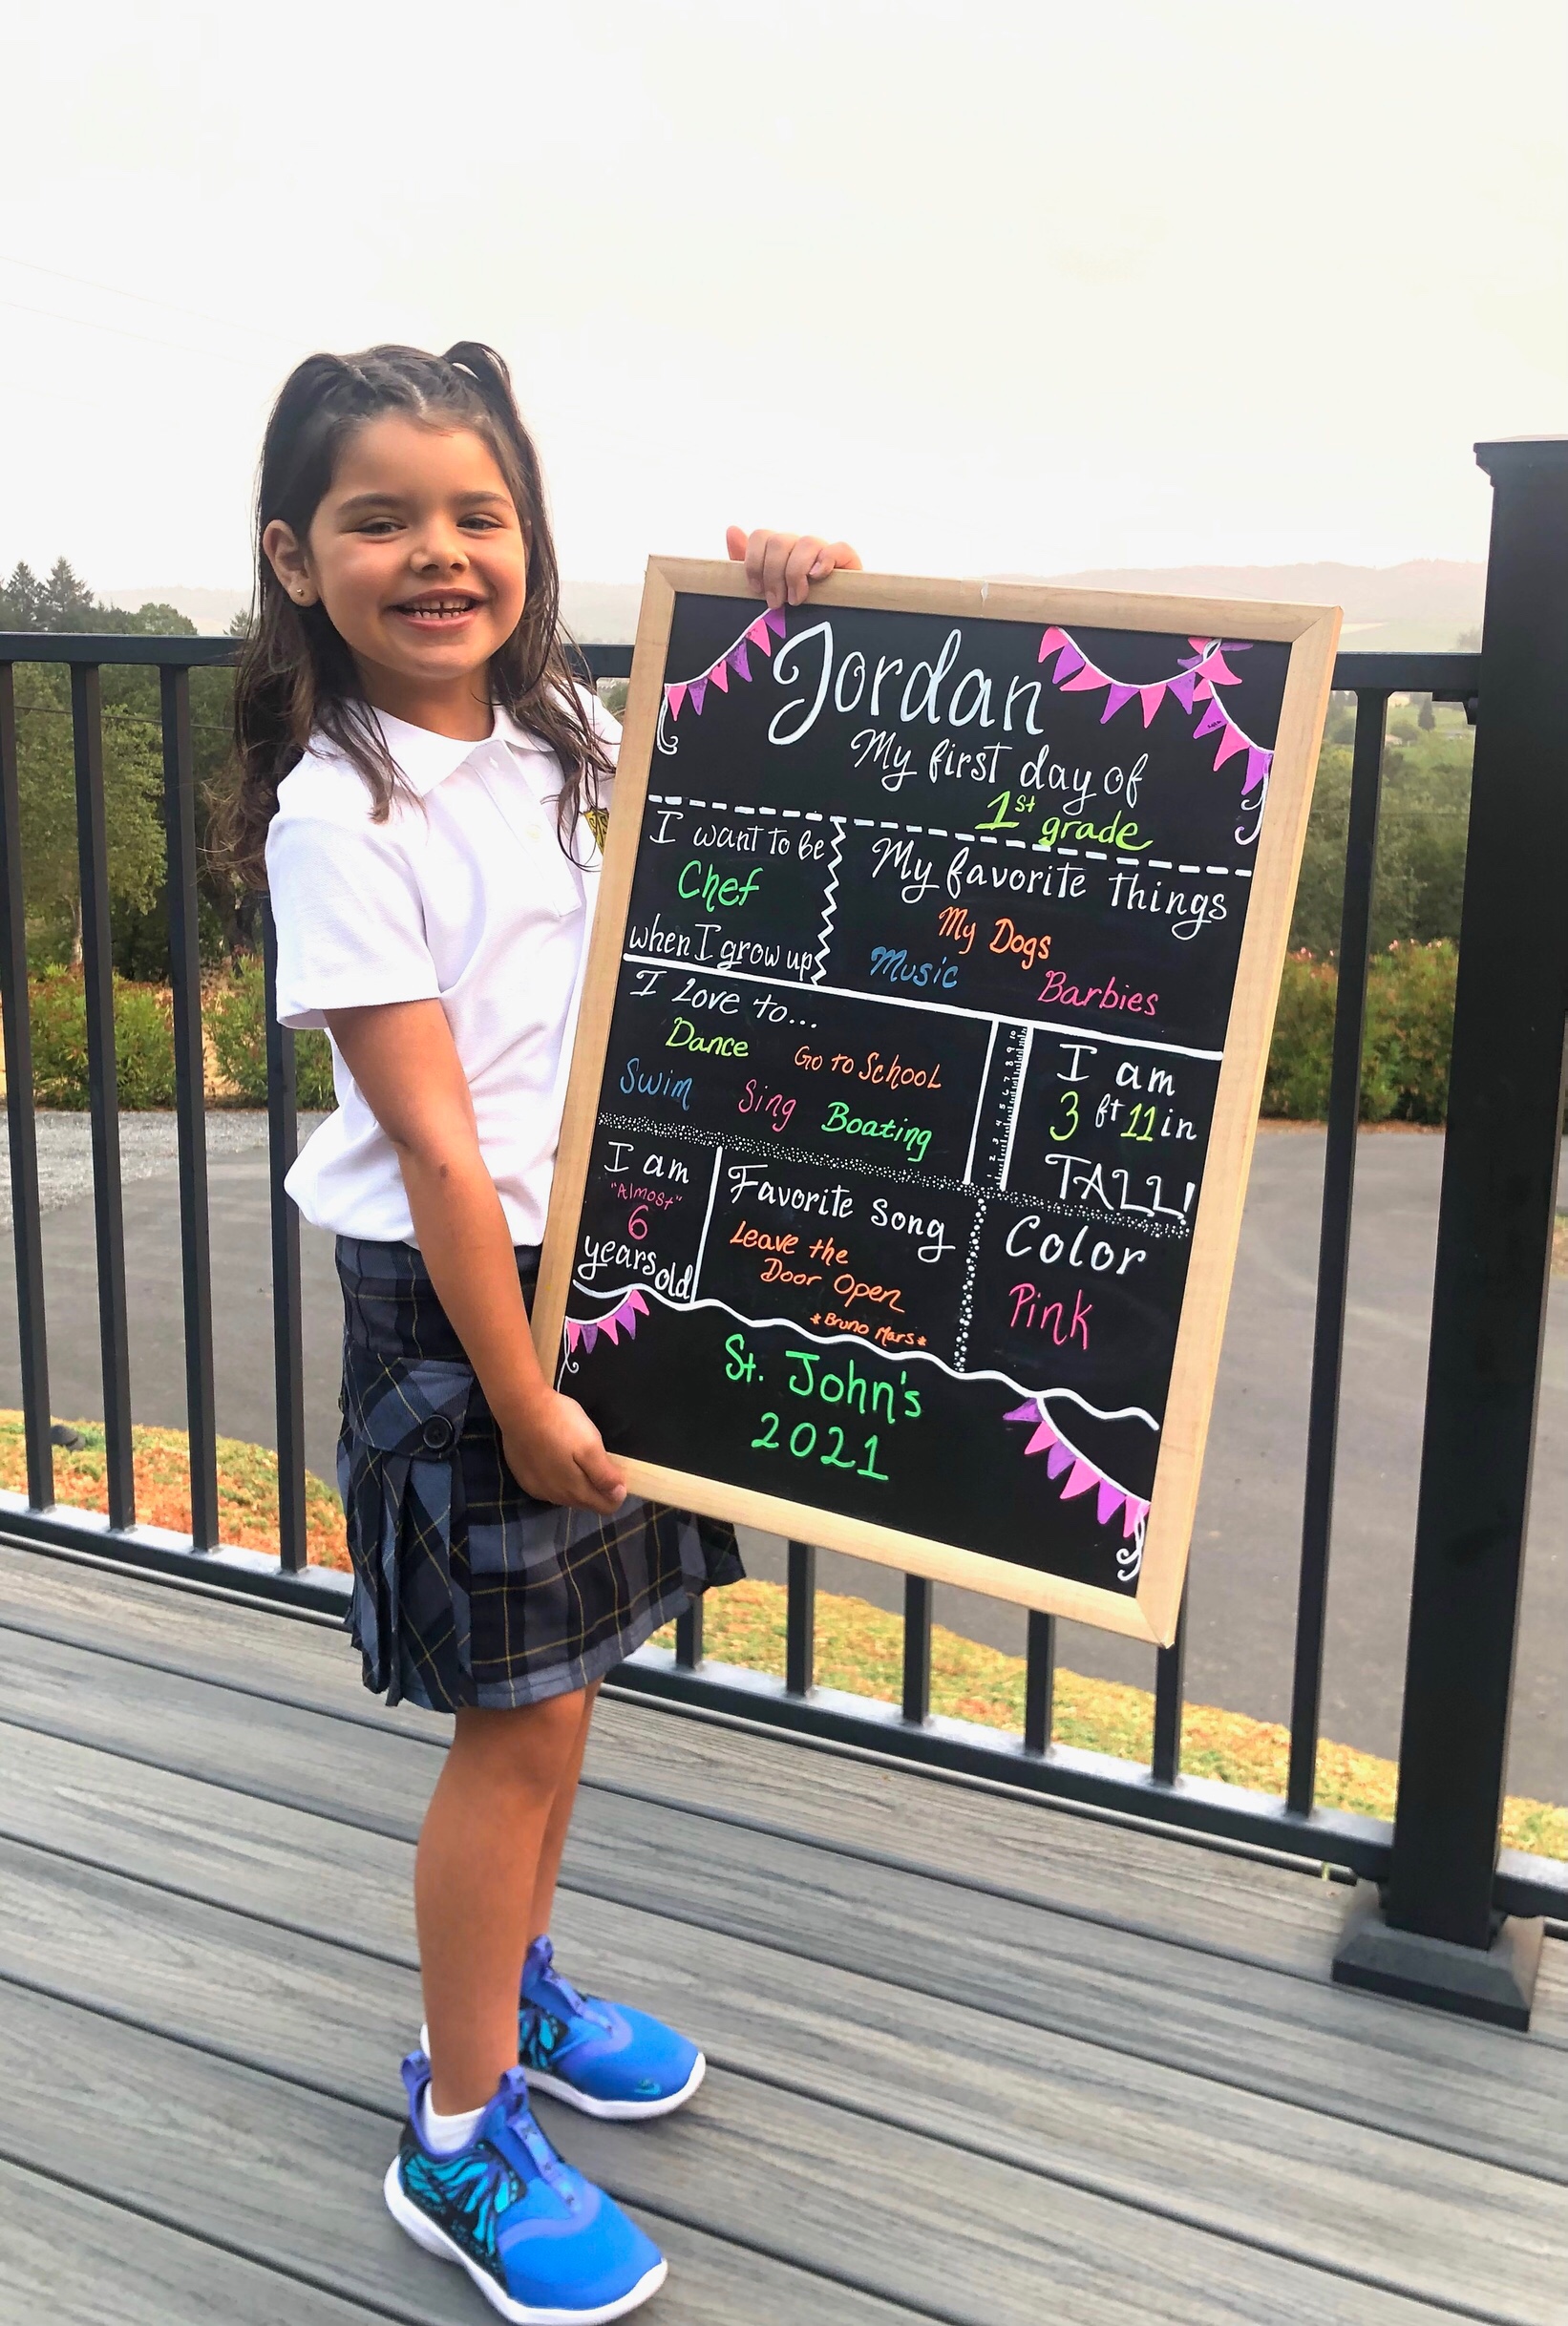 Jordan
My first day of
1st grade
I want to be
Chef
when I grow up
My favorite things
My Dogs
Music
Barbies
I Love to...
Dance
Go to School
Swim
Sing
Boating
1 2 3 4 5 6 7 8 9 10
I am
3 ft 11 in
TALL!
I am
"Almost"
6
years old
Favorite song
Leave the
Door Open
*Bruno Mars*
Color
Pink
St. John's
2021